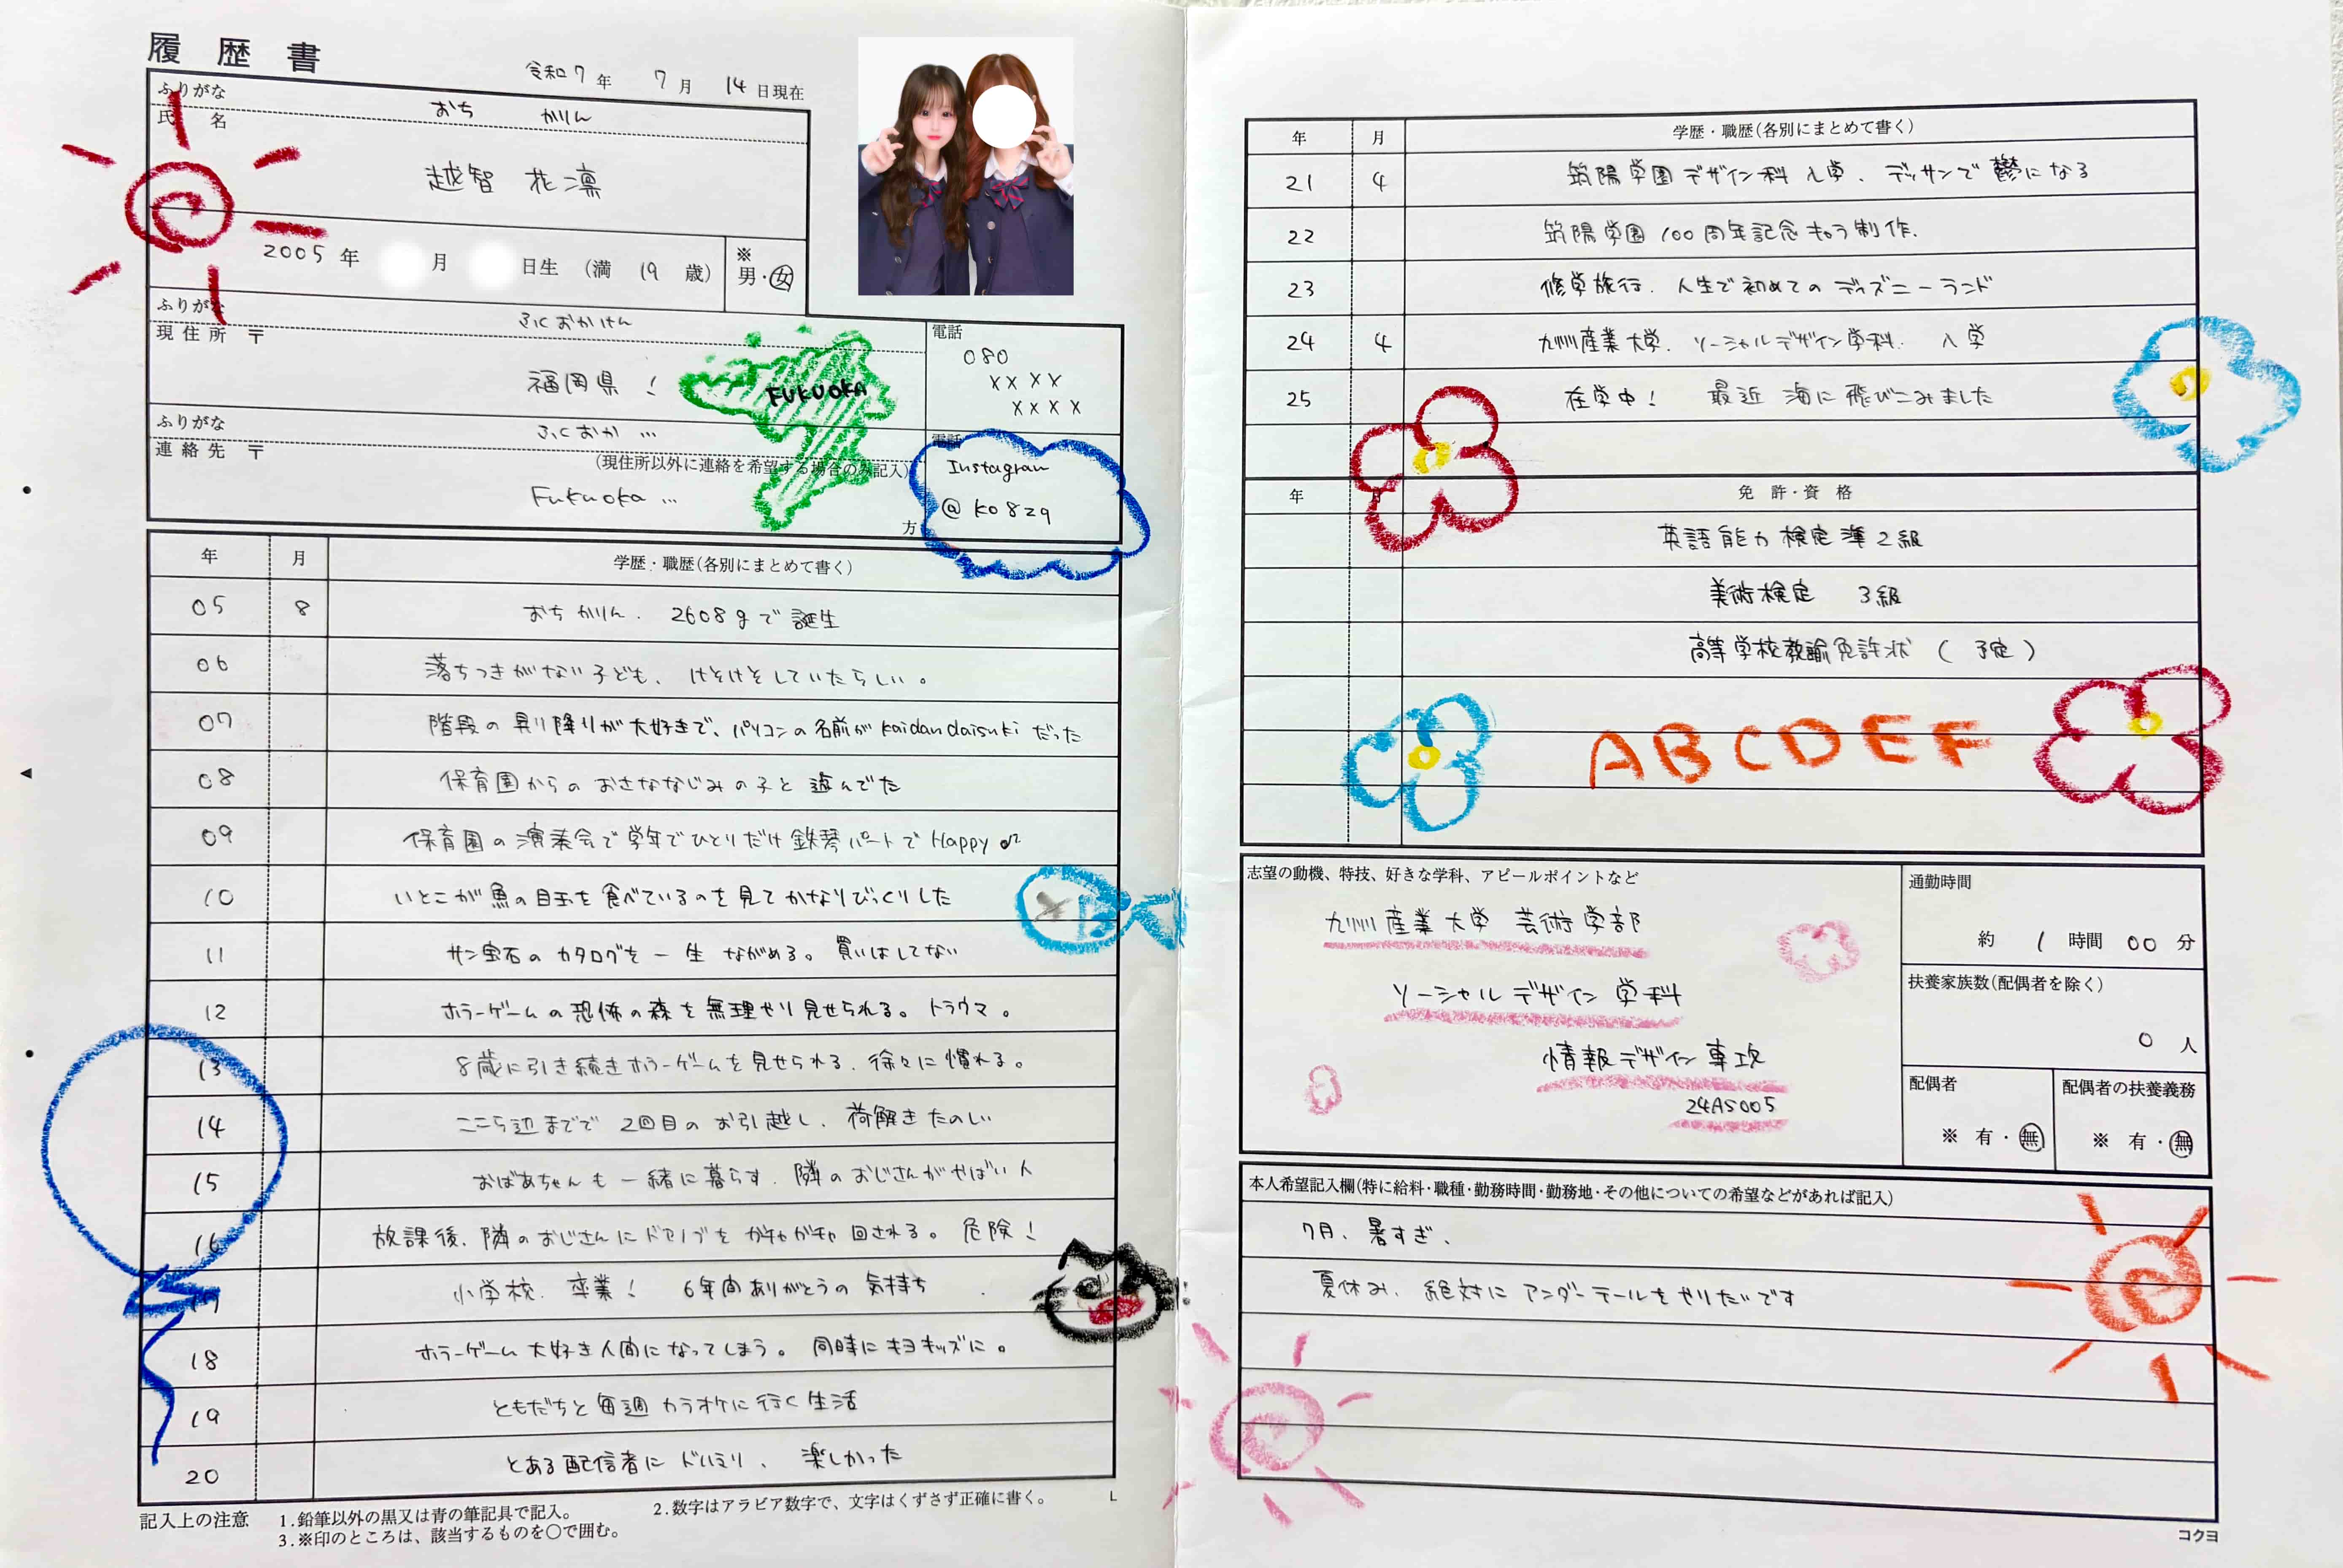 履歴書
令和7年 7月 14日現在
ふりがな おち かりん
氏名
越智 花凛
2005年 月 日生 (満 19 歳)
※
男・女
ふりがな ふくおかけん
現住所 〒
福岡県!
FUKUOKA
電話
080
xxxx
xxxx
ふりがな ふくおか …
連絡先 〒
(現住所以外に連絡を希望する場合のみ記入)
Fukuoka …
方
電話
Instagram
@ko8zq
年 月 学歴・職歴(各別にまとめて書く)
05 8 おちかりん. 2608gで誕生
06 落ちつきがない子ども、けそけそしていたらしい。
07 階段の昇り降りが大好きで、パソコンの名前がkaidandaisukiだった
08 保育園からのおさななじみの子と遊んでた
09 保育園の演奏会で学年でひとりだけ鉄琴パートでHappy♫
10 いとこが魚の目玉を食べているのを見てかなりびっくりした
11 サン宝石のカタログを一生ながめる。買いはしてない
12 ホラーゲームの恐怖の森を無理やり見せられる。トラウマ。
13 8歳に引き続きホラーゲームを見せられる.徐々に慣れる。
14 ここら辺までで2回目のお引越し.荷解きたのしい
15 おばあちゃんも一緒に暮らす.隣のおじさんがやばい人
16 放課後、隣のおじさんにドアノブをガチャガチャ回される。危険!
17 小学校.卒業! 6年間ありがとうの気持ち
18 ホラーゲーム大好き人間になってしまう。同時にキヨキッズに。
19 ともだちと毎週カラオケに行く生活
20 とある配信者にドハマり、楽しかった
記入上の注意 1.鉛筆以外の黒又は青の筆記具で記入。 2.数字はアラビア数字で、文字はくずさず正確に書く。
3.※印のところは、該当するものを○で囲む。
L
年 月 学歴・職歴(各別にまとめて書く)
21 4 筑陽学園デザイン科入学、デッサンで鬱になる
22 筑陽学園100周年記念もう制作.
23 修学旅行.人生で初めてのディズニーランド
24 4 九州産業大学.ソーシャルデザイン学科.入学
25 在学中! 最近海に飛びこみました
年 月 免許・資格
英語能力検定準2級
美術検定 3級
高等学校教諭免許状(予定)
ABCDEF
志望の動機、特技、好きな学科、アピールポイントなど
九州産業大学 芸術学部
ソーシャルデザイン学科
情報デザイン専攻
24AS005
通勤時間
約 1 時間 00 分
扶養家族数(配偶者を除く)
0 人
配偶者
※ 有・無
配偶者の扶養義務
※ 有・無
本人希望記入欄(特に給料・職種・勤務時間・勤務地・その他についての希望などがあれば記入)
7月、暑すぎ、
夏休み、絶対にアンダーテールをやりたいです
コクヨ